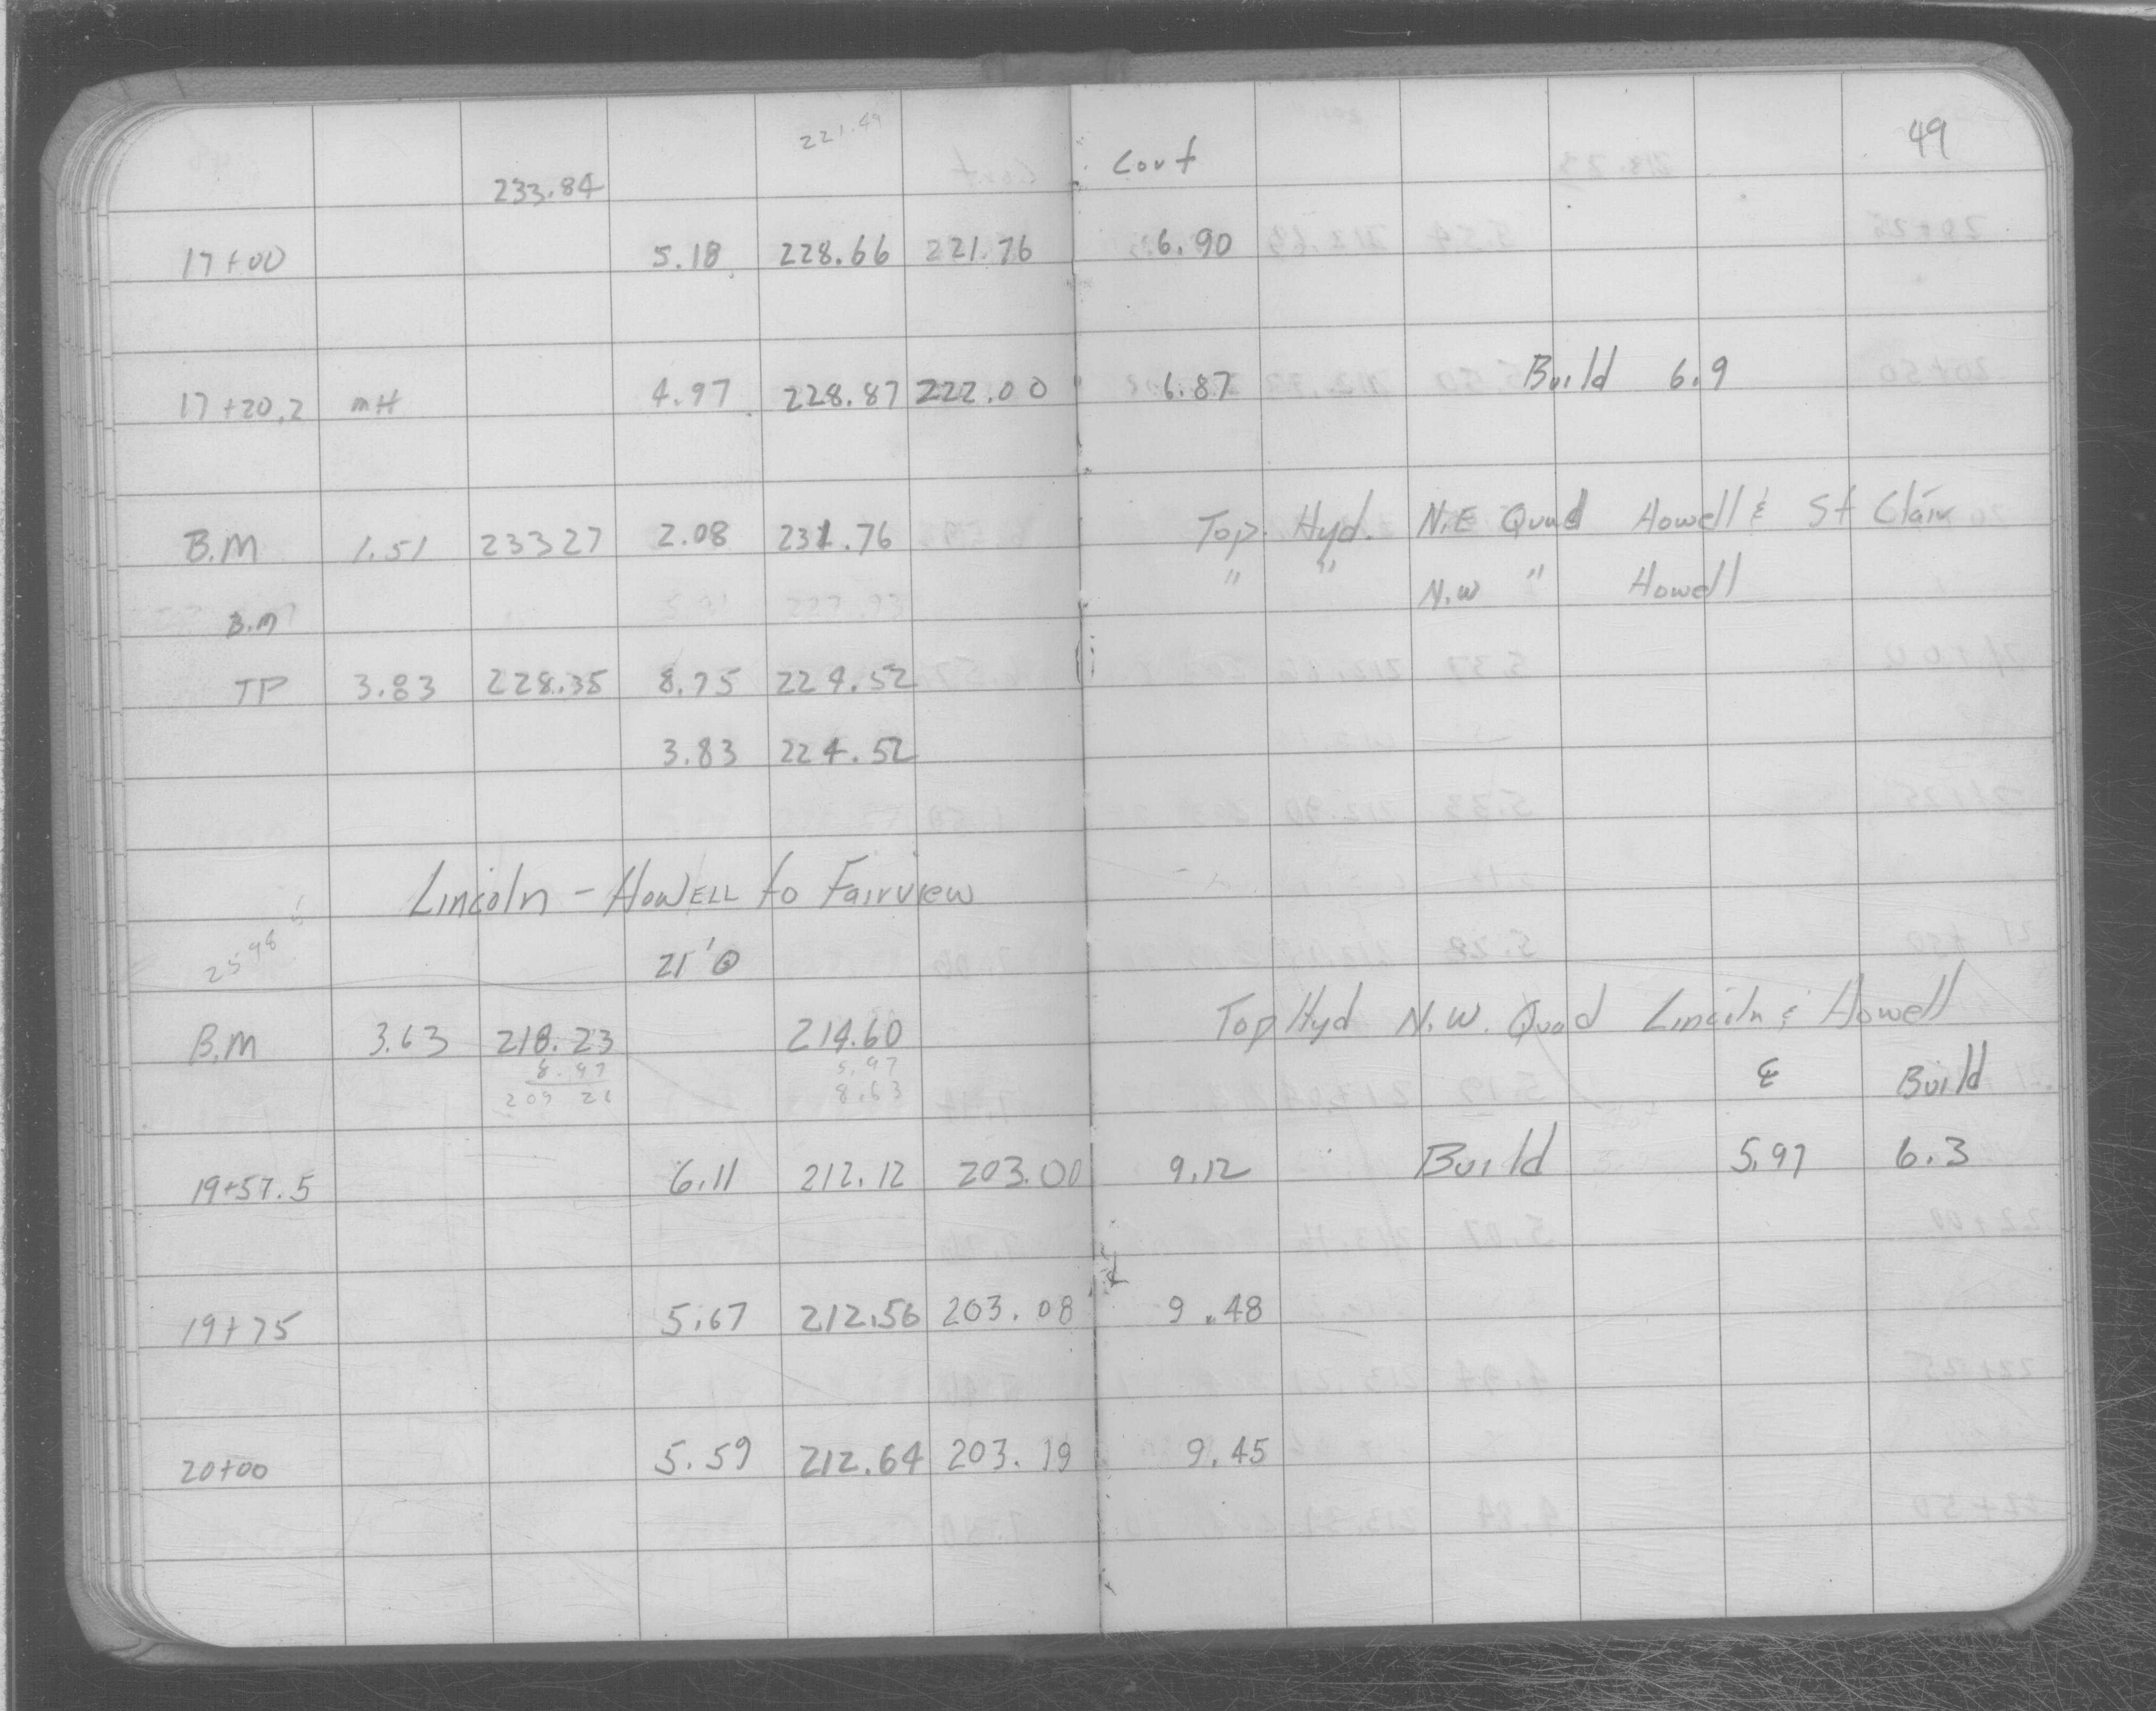 221.49
49
233.84 Cont
17+00 5.18 228.66 221.76 6.90
17+20.2 mH 4.97 228.87 222.00 6.87 Build 6.9
B.M 1.51 23327 2.08 231.76 Top. Hyd. N.E Quad Howell & St Clair
B.M " " N.W " Howell
TP 3.83 228.35 8.75 224.52
3.83 224.52
Lincoln - HOWELL to Fairview
21'
B.M 3.63 218.23 214.60 Top Hyd N.W. Quad Lincoln & Howell
8.97 5.97 Build
209 26 8.63
19+57.5 6.11 212.12 203.00 9.12 Build 5.97 6.3
19+75 5.67 212.56 203.08 9.48
20+00 5.59 212.64 203.19 9.45